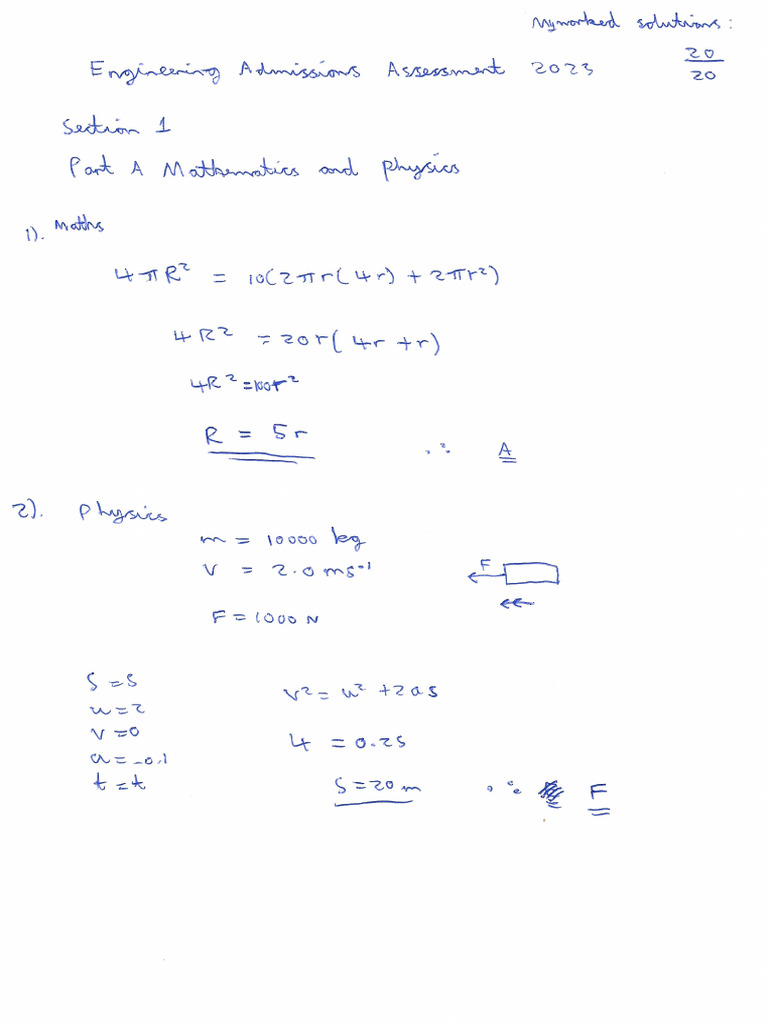 Myworked solutions:
Engineering Admissions Assessment 2023
20
20
Section 1
Part A Mathematics and physics
1). Maths
4πR² = 10(2πr(4r) + 2πr²)
4R² = 20r(4r + r)
4R² = 100r²
R = 5r ∴ A
2). Physics
m = 10000 kg
v = 2.0 ms⁻¹
F
F = 1000 N
s = s
u = 2
v = 0
a = -0.1
t = t
v² = u² + 2as
4 = 0.2s
s = 20 m ∴ F